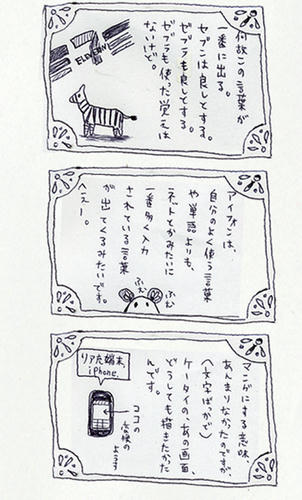 何故この言葉が
一番に出る。
セブンは良しとする。
ゼブラも良しとする。
ゼブラも使った覚えは
ないけど。
7
ELEVEN
アイフォンは、
自分のよく使う言葉
や単語よりも、
ネットとかみたいに
一番多く入力
されている言葉
が出てくるみたいです。
へえー。
ふむ
ふむ
マンガにする意味、
あんまりなかったのですが、
(文字ばかで)
ケータイの、あの画面、
どうしても描きたかった
んです。
リアた端末、
iPhone
ココの
変換の
ようす